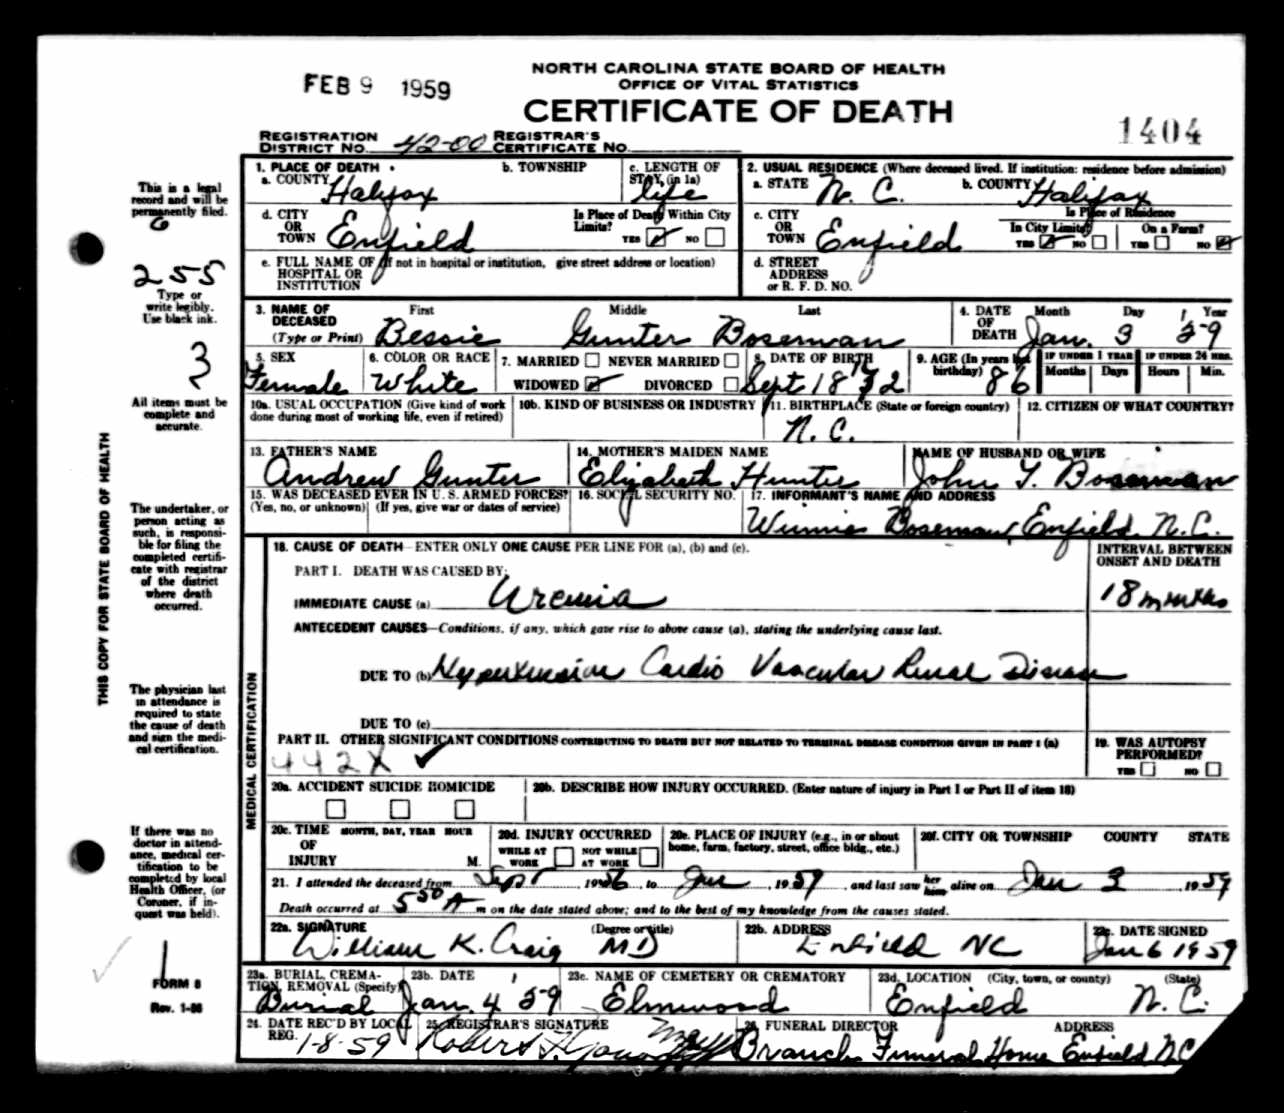 NORTH CAROLINA STATE BOARD OF HEALTH
OFFICE OF VITAL STATISTICS
CERTIFICATE OF DEATH
FEB 9 1959
1404
REGISTRATION DISTRICT NO. 42-00 REGISTRAR'S CERTIFICATE NO.
1. PLACE OF DEATH
a. COUNTY Halifax
b. TOWNSHIP
c. LENGTH OF STAY (in 1a) life
2. USUAL RESIDENCE (Where deceased lived. If institution: residence before admission)
a. STATE N. C. b. COUNTY Halifax
d. CITY OR TOWN Enfield
Is Place of Death Within City Limits? YES NO
c. CITY OR TOWN Enfield
Is Place of Residence
In City Limits? YES NO
On a Farm? YES NO
e. FULL NAME OF (If not in hospital or institution, give street address or location)
HOSPITAL OR
INSTITUTION
d. STREET
ADDRESS
or R. F. D. NO.
3. NAME OF DECEASED (Type or Print)
First Middle Last
Bessie Gunter Boseman
4. DATE OF DEATH Month Day Year
Jan. 3 '59
5. SEX Female
6. COLOR OR RACE White
7. MARRIED NEVER MARRIED
WIDOWED DIVORCED
8. DATE OF BIRTH Sept 18
9. AGE (In years last birthday) 86
IF UNDER 1 YEAR Months Days
IF UNDER 24 HRS. Hours Min.
10a. USUAL OCCUPATION (Give kind of work done during most of working life, even if retired)
10b. KIND OF BUSINESS OR INDUSTRY
11. BIRTHPLACE (State or foreign country) N. C.
12. CITIZEN OF WHAT COUNTRY?
13. FATHER'S NAME Andrew Gunter
14. MOTHER'S MAIDEN NAME Elizabeth Hunter
NAME OF HUSBAND OR WIFE John T. Boseman
15. WAS DECEASED EVER IN U. S. ARMED FORCES?
(Yes, no, or unknown) (If yes, give war or dates of service)
16. SOCIAL SECURITY NO.
17. INFORMANT'S NAME AND ADDRESS
Winnie Boseman, Enfield, N.C.
18. CAUSE OF DEATH—ENTER ONLY ONE CAUSE PER LINE FOR (a), (b) and (c).
INTERVAL BETWEEN ONSET AND DEATH
PART I. DEATH WAS CAUSED BY:
IMMEDIATE CAUSE (a) Uremia 18 months
ANTECEDENT CAUSES—Conditions, if any, which gave rise to above cause (a), stating the underlying cause last.
DUE TO (b) Hypertensive Cardio Vascular Renal Disease
DUE TO (c)
PART II. OTHER SIGNIFICANT CONDITIONS CONTRIBUTING TO DEATH BUT NOT RELATED TO TERMINAL DISEASE CONDITION GIVEN IN PART I (a)
442X
19. WAS AUTOPSY PERFORMED?
YES NO
20a. ACCIDENT SUICIDE HOMICIDE
20b. DESCRIBE HOW INJURY OCCURRED. (Enter nature of injury in Part I or Part II of item 18)
20c. TIME OF INJURY MONTH, DAY, YEAR HOUR M.
20d. INJURY OCCURRED
WHILE AT WORK NOT WHILE AT WORK
20e. PLACE OF INJURY (e.g., in or about home, farm, factory, street, office bldg., etc.)
20f. CITY OR TOWNSHIP COUNTY STATE
21. I attended the deceased from Sept 1956, to Jan, 1959, and last saw her him alive on Jan 3 1959
Death occurred at 5 50 A m on the date stated above; and to the best of my knowledge from the causes stated.
22a. SIGNATURE (Degree or title)
William K. Craig MD
22b. ADDRESS Enfield NC
22c. DATE SIGNED Jan 6 1959
23a. BURIAL, CREMATION, REMOVAL (Specify) Burial
23b. DATE Jan. 4 '59
23c. NAME OF CEMETERY OR CREMATORY Elmwood
23d. LOCATION (City, town, or county) (State)
Enfield N. C.
24. DATE REC'D BY LOCAL REG. 1-8-59
25. REGISTRAR'S SIGNATURE
Robert F.
26. FUNERAL DIRECTOR ADDRESS
Branch Funeral Home Enfield NC
This is a legal
record and will be
permanently filed.
6
255
Type or
write legibly.
Use black ink.
3
All items must be
complete and
accurate.
THIS COPY FOR STATE BOARD OF HEALTH
The undertaker, or
person acting as
such, is responsi-
ble for filing the
completed certifi-
cate with registrar
of the district
where death
occurred.
MEDICAL CERTIFICATION
The physician last
in attendance is
required to state
the cause of death
and sign the medi-
cal certification.
If there was no
doctor in attend-
ance, medical cer-
tification to be
completed by local
Health Officer, (or
Coroner, if in-
quest was held).
1
FORM 8
Rev. 1-56